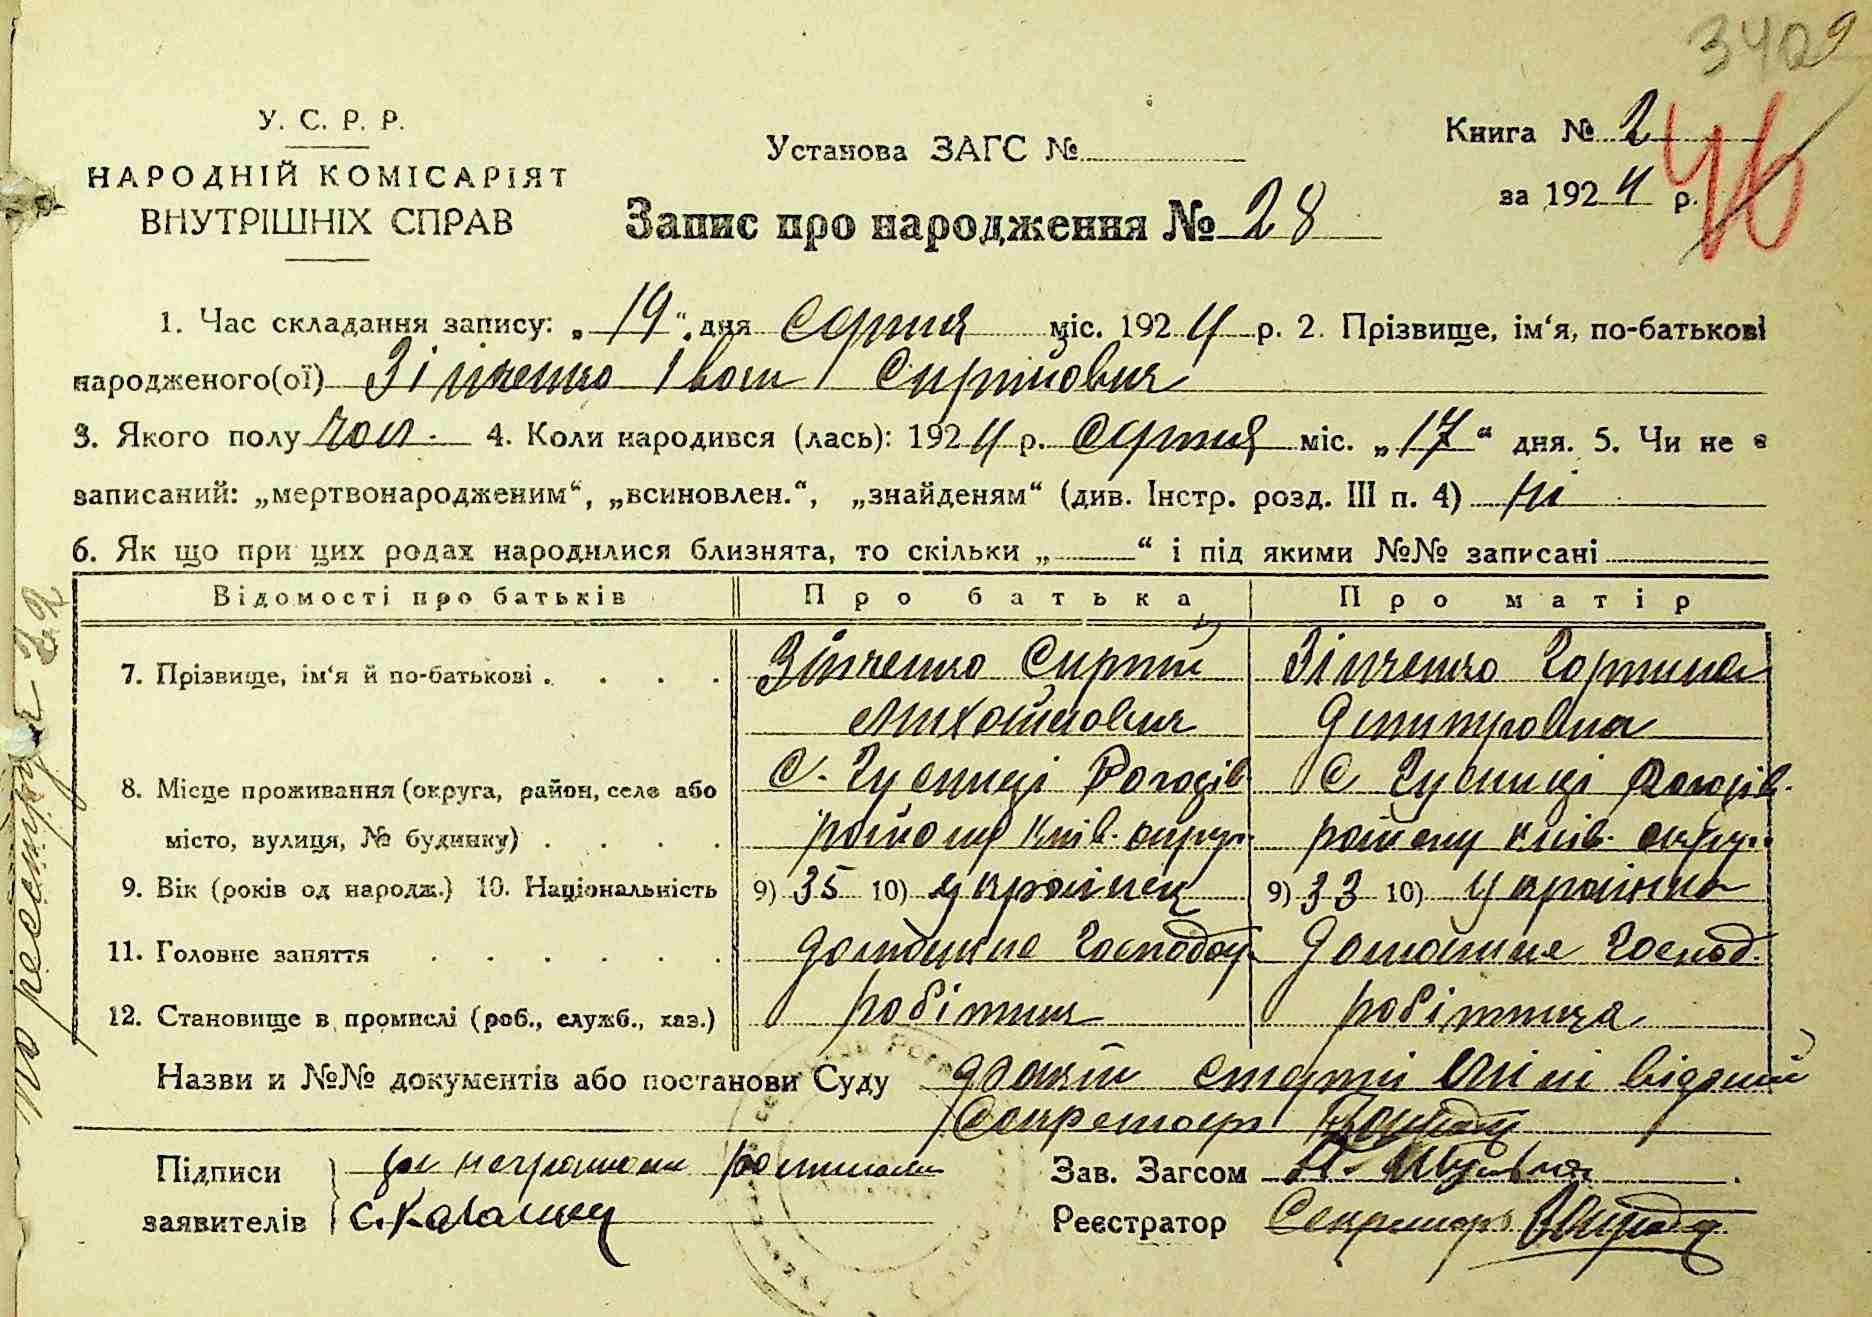 3409
У. С. Р. Р.
НАРОДНІЙ КОМІСАРІЯТ
ВНУТРІШНІХ СПРАВ
Установа ЗАГС №
Книга № 2
за 1924 р.
46
Запис про народження № 28
1. Час складання запису: „19“ дня Серпня міс. 1924 р. 2. Прізвище, ім‘я, по-батькові
народженого(ої) Зінченко Іван Сиргійович
3. Якого полу чол. 4. Коли народився (лась): 1924 р. Серпня міс. „17“ дня. 5. Чи не є
записаний: „мертвонародженим“, „всиновлен.“, „знайденям“ (див. Інстр. розд. III п. 4) ні
6. Як що при цих родах народилися близнята, то скільки „ “ і під якими №№ записані
Відомості про батьків Про батька Про матір
7. Прізвище, ім‘я й по-батькові . . . . Зінченко Сиргій Зінченко Горпина
Михайлович Дмитровна
8. Місце проживання (округа, район, село або С. Гусинці Рогозів. С Гусинці Рогозів.
місто, вулиця, № будинку) . . . . району Київ. окру.. району Київ. окру..
9. Вік (років од народж.) 10. Національність 9) 35 10) українец 9) 33 10) українка
11. Головне заняття . . . . . . домашне господар. Домашне господ.
12. Становище в промислі (роб., служб., хаз.) робітник робітниця
Назви и №№ документів або постанови Суду
Секретарь
Підписи за неграмотни росписали Зав. Загсом
заявителів Реєстратор Секретарь